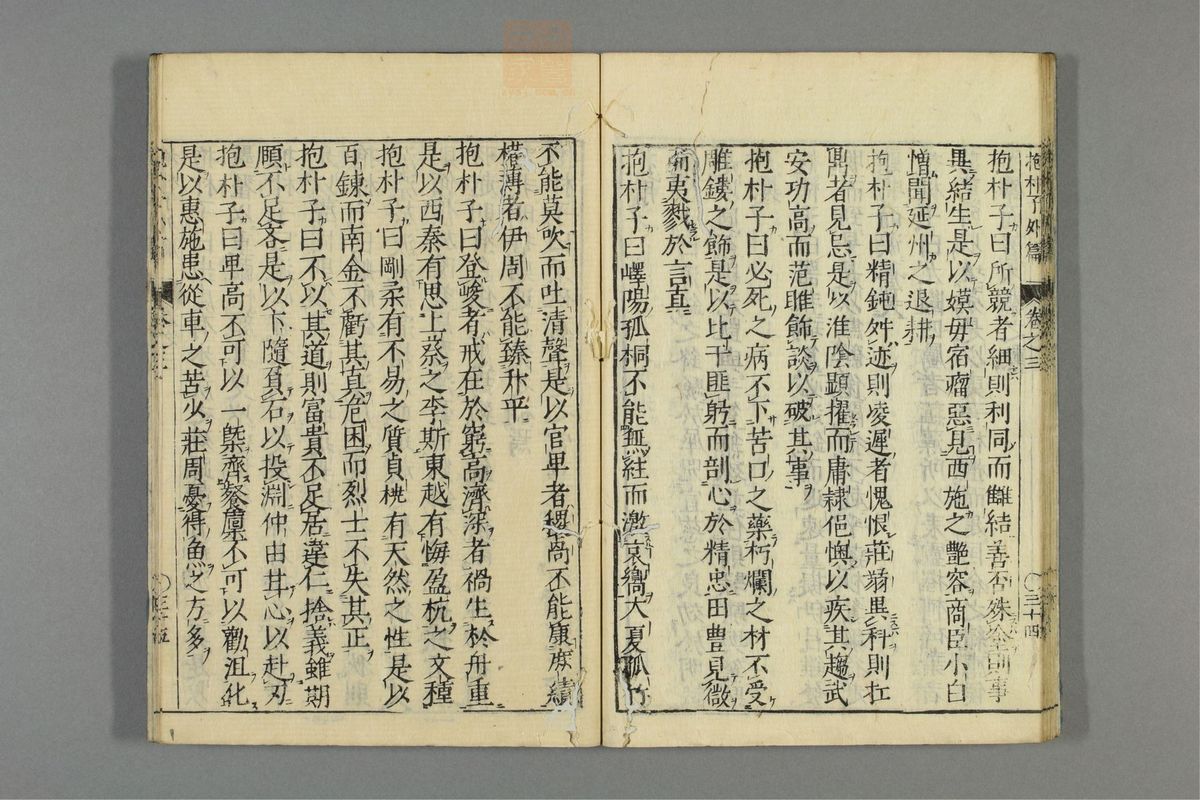 抱朴子外篇 卷之三 三十四
抱朴子曰所競者細則利同而讎結善否殊全則事
異結生是以嫫母宿瘤惡見西施之艷容商臣小白
憎聞延州之退耕
抱朴子曰精鈍舛迹則凌遲者愧恨莊蒻異科則扛
者見忌是以淮陰顕擢而庸隷悒懊以疾其趨武
安功高而范雎飾談以破其事
抱朴子曰必死之病不下苦口之藥朽爛之材不受
雕鏤之飾是以比干匪躬而剖心於精忠田豊見微
而夷戮於言直
抱朴子曰嶧陽孤桐不能無絃而激哀嚮大夏孤竹
不能莫吹而吐清聲是以官卑者稷卨不能康庶績
權薄者伊周不能臻升平
抱朴子曰登峻者戒在於窮高濟深者禍生於舟重
是以西秦有思上蔡之李斯東越有悔盈杭之文種
抱朴子曰剛柔有不易之質貞桄有天然之性是以
百鍊而南金不虧其真危困而烈士不失其正
抱朴子曰不以其道則富貴不足居違仁捨義雖期
頤不足吝是以卞隨負石以投淵仲由甘心以赴刃
抱朴子曰卑高不可以一槩齊餐廩不可以勸沮化
是以惠施患從車之苦少莊周憂得魚之方多
三十五